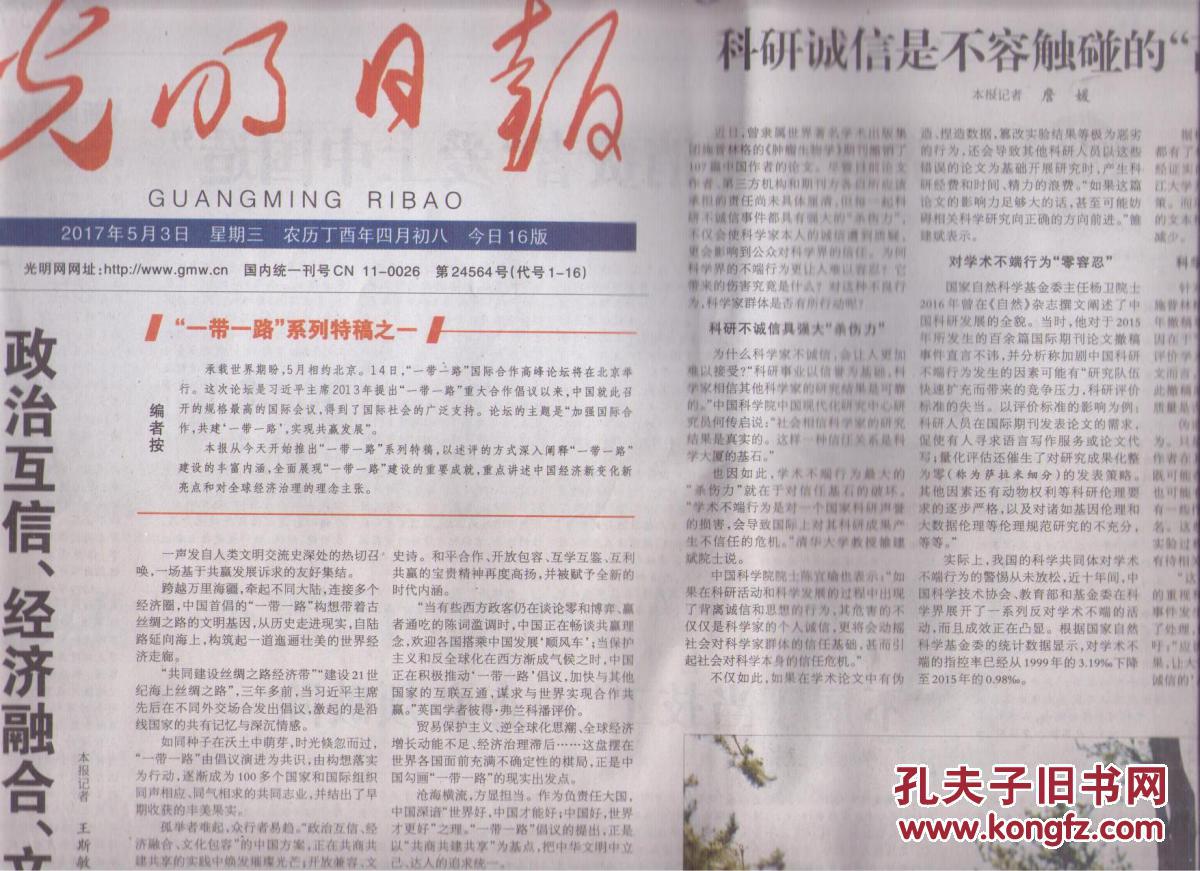 光明日报
GUANGMING RIBAO
2017年5月3日 星期三 农历丁酉年四月初八 今日16版
光明网网址:http://www.gmw.cn 国内统一刊号CN 11-0026 第24564号(代号1-16)
“一带一路”系列特稿之一
编者按
承载世界期盼,5月相约北京。14日,“一带一路”国际合作高峰论坛将在北京举
行。这次论坛是习近平主席2013年提出“一带一路”重大合作倡议以来,中国就此召
开的规格最高的国际会议,得到了国际社会的广泛支持。论坛的主题是“加强国际合
作,共建‘一带一路’,实现共赢发展”。
本报从今天开始推出“一带一路”系列特稿,以述评的方式深入阐释“一带一路”
建设的丰富内涵,全面展现“一带一路”建设的重要成就,重点讲述中国经济新变化新
亮点和对全球经济治理的理念主张。
政治互信、经济融合、文
本报记者 王斯敏
一声发自人类文明交流史深处的热切召
唤,一场基于共赢发展诉求的友好集结。
跨越万里海疆,牵起不同大陆,连接多个
经济圈,中国首倡的“一带一路”构想带着古
丝绸之路的文明基因,从历史走进现实,自陆
路延向海上,构筑起一道迤逦壮美的世界经
济走廊。
“共同建设丝绸之路经济带”“建设21世
纪海上丝绸之路”,三年多前,当习近平主席
先后在不同外交场合发出倡议,激起的是沿
线国家的共有记忆与深沉情感。
如同种子在沃土中萌芽,时光倏忽而过,
“一带一路”由倡议演进为共识,由构想落实
为行动,逐渐成为100多个国家和国际组织
同声相应、同气相求的共同志业,并结出了早
期收获的丰美果实。
孤举者难起,众行者易趋。“政治互信、经
济融合、文化包容”的中国方案,正在共商共
建共享的实践中焕发璀璨光芒;开放兼容、文
史诗。和平合作、开放包容、互学互鉴、互利
共赢的宝贵精神再度高扬,并被赋予全新的
时代内涵。
“当有些西方政客仍在谈论零和博弈、赢
者通吃的陈词滥调时,中国正在畅谈共赢理
念,欢迎各国搭乘中国发展‘顺风车’;当保护
主义和反全球化在西方渐成气候之时,中国
正在积极推动‘一带一路’倡议,加快与其他
国家的互联互通,谋求与世界实现合作共
赢。”英国学者彼得·弗兰科潘评价。
贸易保护主义、逆全球化思潮、全球经济
增长动能不足、经济治理滞后……这盘摆在
世界各国面前充满不确定性的棋局,正是中
国勾画“一带一路”的现实出发点。
沧海横流,方显担当。作为负责任大国,
中国深谙“世界好,中国才能好;中国好,世界
才更好”之理。“一带一路”倡议的提出,正是
以“共商共建共享”为基点,把中华文明中立
己、达人的追求统一
科研诚信是不容触碰的“
本报记者 詹媛
近日,曾隶属世界著名学术出版集
团施普林格的《肿瘤生物学》期刊撤销了
107篇中国作者的论文。尽管目前论文
作者、第三方机构和期刊方各自所应该
承担的责任尚未具体厘清,但每一起科
研不诚信事件都具有强大的“杀伤力”,
不仅会使科学家本人的诚信遭到质疑,
更会影响到公众对科学界的信任。为何
科学界的不端行为更让人难以容忍?它
带来的伤害究竟是什么?对这种不良行
为,科学家群体是否有所行动呢?
科研不诚信具强大“杀伤力”
为什么科学家不诚信,会让人更加
难以接受?“科研事业以信誉为基础,科
学家相信其他科学家的研究结果是可靠
的。”中国科学院中国现代化研究中心研
究员何传启说:“社会相信科学家的研究
结果是真实的。这样一种信任关系是科
学大厦的基石。”
也因如此,学术不端行为最大的
“杀伤力”就在于对信任基石的破坏。
“学术不端行为是对一个国家科研声誉
的损害,会导致国际上对其科研成果产
生不信任的危机。”清华大学教授雒建
斌院士说。
中国科学院院士陈宜瑜也表示:“如
果在科研活动和科学发展的过程中出现
了背离诚信和思想的行为,其危害的不
仅仅是科学家的个人诚信,更将会动摇
社会对科学家群体的信任基础,甚而引
起社会对科学本身的信任危机。”
不仅如此,如果在学术论文中有伪
造、捏造数据,篡改实验结果等极为恶劣
的行为,还会导致其他科研人员以这些
错误的论文为基础开展研究时,产生科
研经费和时间、精力的浪费。“如果这篇
论文的影响力足够大的话,甚至可能妨
碍相关科学研究向正确的方向前进。”雒
建斌表示。
对学术不端行为“零容忍”
国家自然科学基金委主任杨卫院士
2016年曾在《自然》杂志撰文阐述了中
国科研发展的全貌。当时,他对于2015
年所发生的百余篇国际期刊论文撤稿
事件直言不讳,并分析称加剧中国科研
不端行为发生的因素可能有“研究队伍
快速扩充而带来的竞争压力,科研评价
标准的失当。以评价标准的影响为例:
科研人员在国际期刊发表论文的需求,
促使有人寻求语言写作服务或论文代
写;量化评估还催生了对研究成果化整
为零(称为萨拉米细分)的发表策略。
其他因素还有动物权利等科研伦理要
求的逐步严格,以及对诸如基因伦理和
大数据伦理等伦理规范研究的不充分,
等等。”
实际上,我国的科学共同体对学术
不端行为的警惕从未放松,近十年间,中
国科学技术协会、教育部和基金委在科
学界展开了一系列反对学术不端的活
动,而且成效正在凸显。根据国家自然
科学基金委的统计数据显示,对学术不
端的指控率已经从1999年的3.19‰下降
至2015年的0.98‰。
孔夫子旧书网
www.kongfz.com